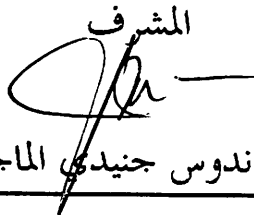 المشرف
ندوس جنيدي الماج